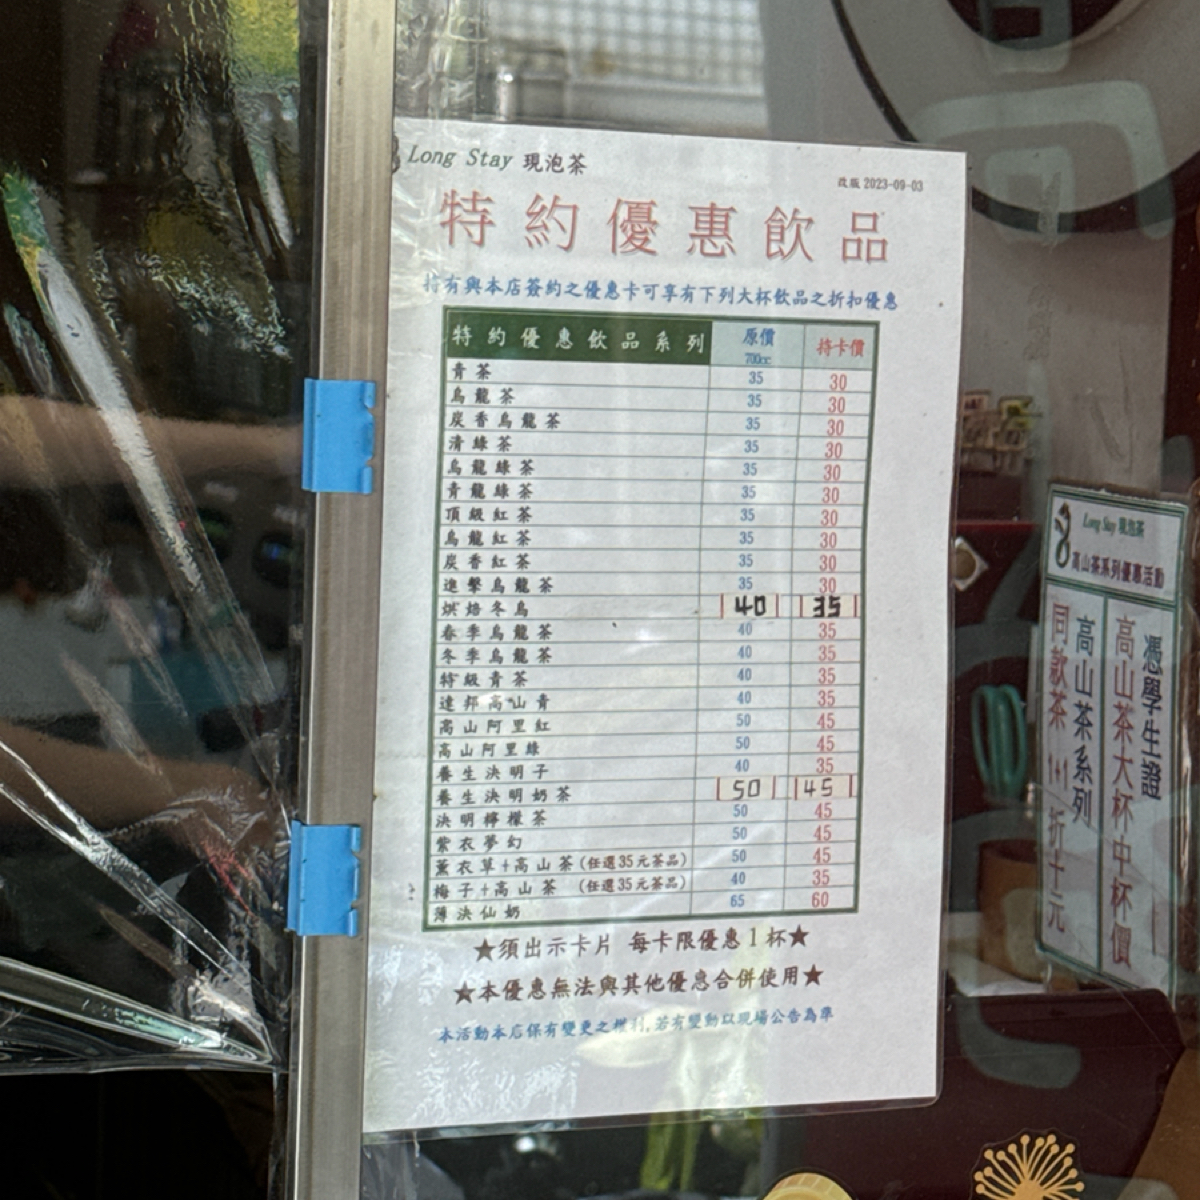 Long Stay 現泡茶
改版 2023-09-03
特約優惠飲品
持有與本店簽約之優惠卡可享有下列大杯飲品之折扣優惠
特約優惠飲品系列 原價 700cc 持卡價
青茶 35 30
烏龍茶 35 30
炭香烏龍茶 35 30
清綠茶 35 30
烏龍綠茶 35 30
青龍綠茶 35 30
頂級紅茶 35 30
烏龍紅茶 35 30
炭香紅茶 35 30
進擊烏龍茶 35 30
烘焙冬烏 40 35
春季烏龍茶 40 35
冬季烏龍茶 40 35
特級青茶 40 35
達邦高山青 40 35
高山阿里紅 50 45
高山阿里綠 50 45
養生決明子 40 35
養生決明奶茶 50 45
決明檸檬茶 50 45
紫衣夢幻 50 45
薰衣草+高山茶(任選35元茶品) 50 45
梅子+高山茶 (任選35元茶品) 40 35
薄決仙奶 65 60
★須出示卡片 每卡限優惠1杯★
★本優惠無法與其他優惠合併使用★
本活動本店保有變更之權利,若有變動以現場公告為準
Long Stay 現泡茶
高山茶系列優惠活動
憑學生證
高山茶大杯中杯價
高山茶系列
同款茶 1+1 折十元